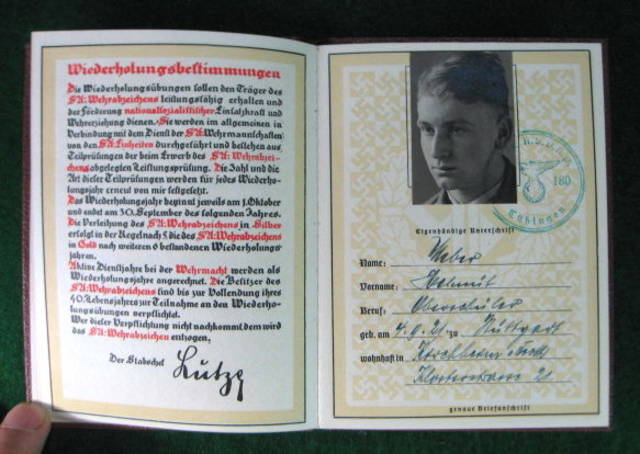 Wiederholungsbestimmungen
Die Wiederholungsübungen sollen den Träger des
SA.-Wehrabzeichens leistungsfähig erhalten und
der Förderung nationalsozialistischer Einsatzkraft und
Wehrerziehung dienen. Sie werden im allgemeinen in
Verbindung mit dem Dienst der SA.-Wehrmannschaften
von den SA.-Einheiten durchgeführt und bestehen aus
Teilprüfungen der beim Erwerb des SA.-Wehrabzei-
chens abgelegten Leistungsprüfung. Die Zahl und die
Art dieser Teilprüfungen werden für jedes Wiederho-
lungsjahr erneut von mir festgesetzt.
Das Wiederholungsjahr beginnt jeweils am 1. Oktober
und endet am 30. September des folgenden Jahres.
Die Verleihung des SA.-Wehrabzeichens in Silber
erfolgt in der Regel nach 5, die des SA.-Wehrabzeichens
in Gold nach weiteren 6 bestandenen Wiederholungs-
jahren.
Aktive Dienstjahre bei der Wehrmacht werden als
Wiederholungsjahre angerechnet. Die Besitzer des
SA.-Wehrabzeichens sind bis zur Vollendung ihres
40. Lebensjahres zur Teilnahme an den Wiederho-
lungsübungen verpflichtet.
Wer dieser Verpflichtung nicht nachkommt dem wird
das SA.-Wehrabzeichen entzogen.
Der Stabschef
Lutze
180
Tübingen
Eigenhändige Unterschrift
Name: Weber
Vorname: Helmut
Beruf: Oberschüler
geb. am 4. 9. 21 zu Stuttgart
wohnhaft in Kirchheim Teck
Klosterstrasse 21
genaue Briefanschrift